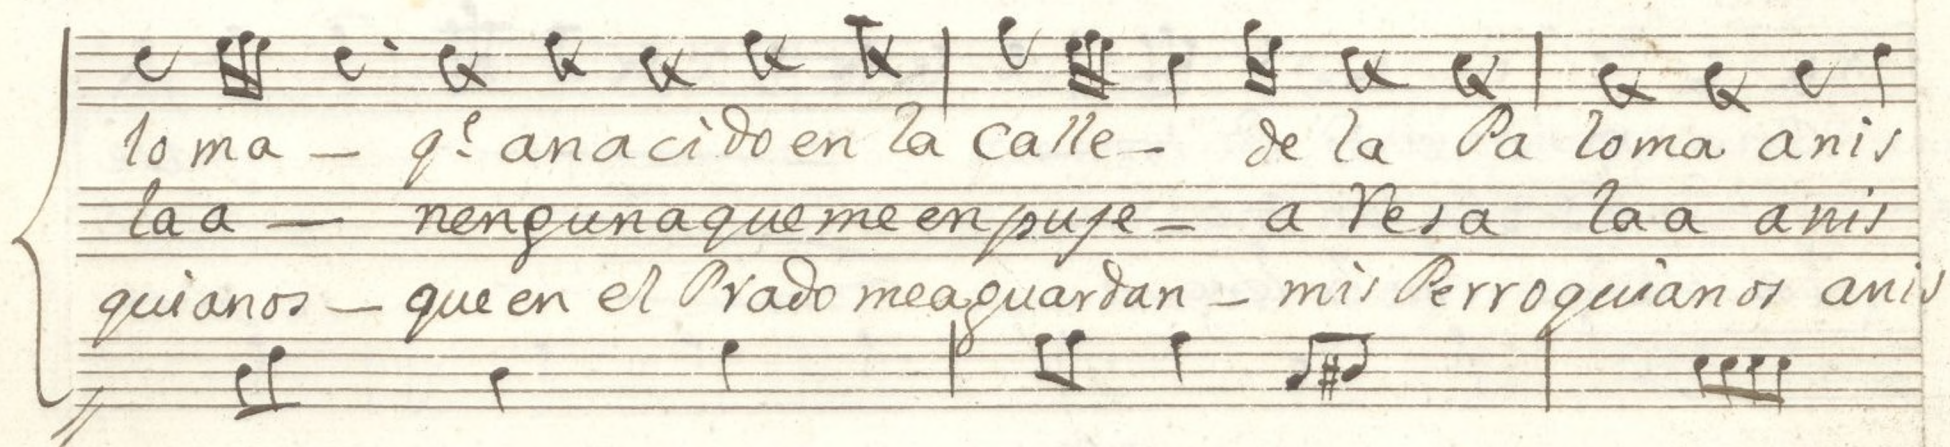 loma - q.e a nacido en la calle - de la Paloma anis
laa - nenguna que me enpuje - a Resalaa anis
quianos - que en el Prado me aguardan - mis Perroquianos anis